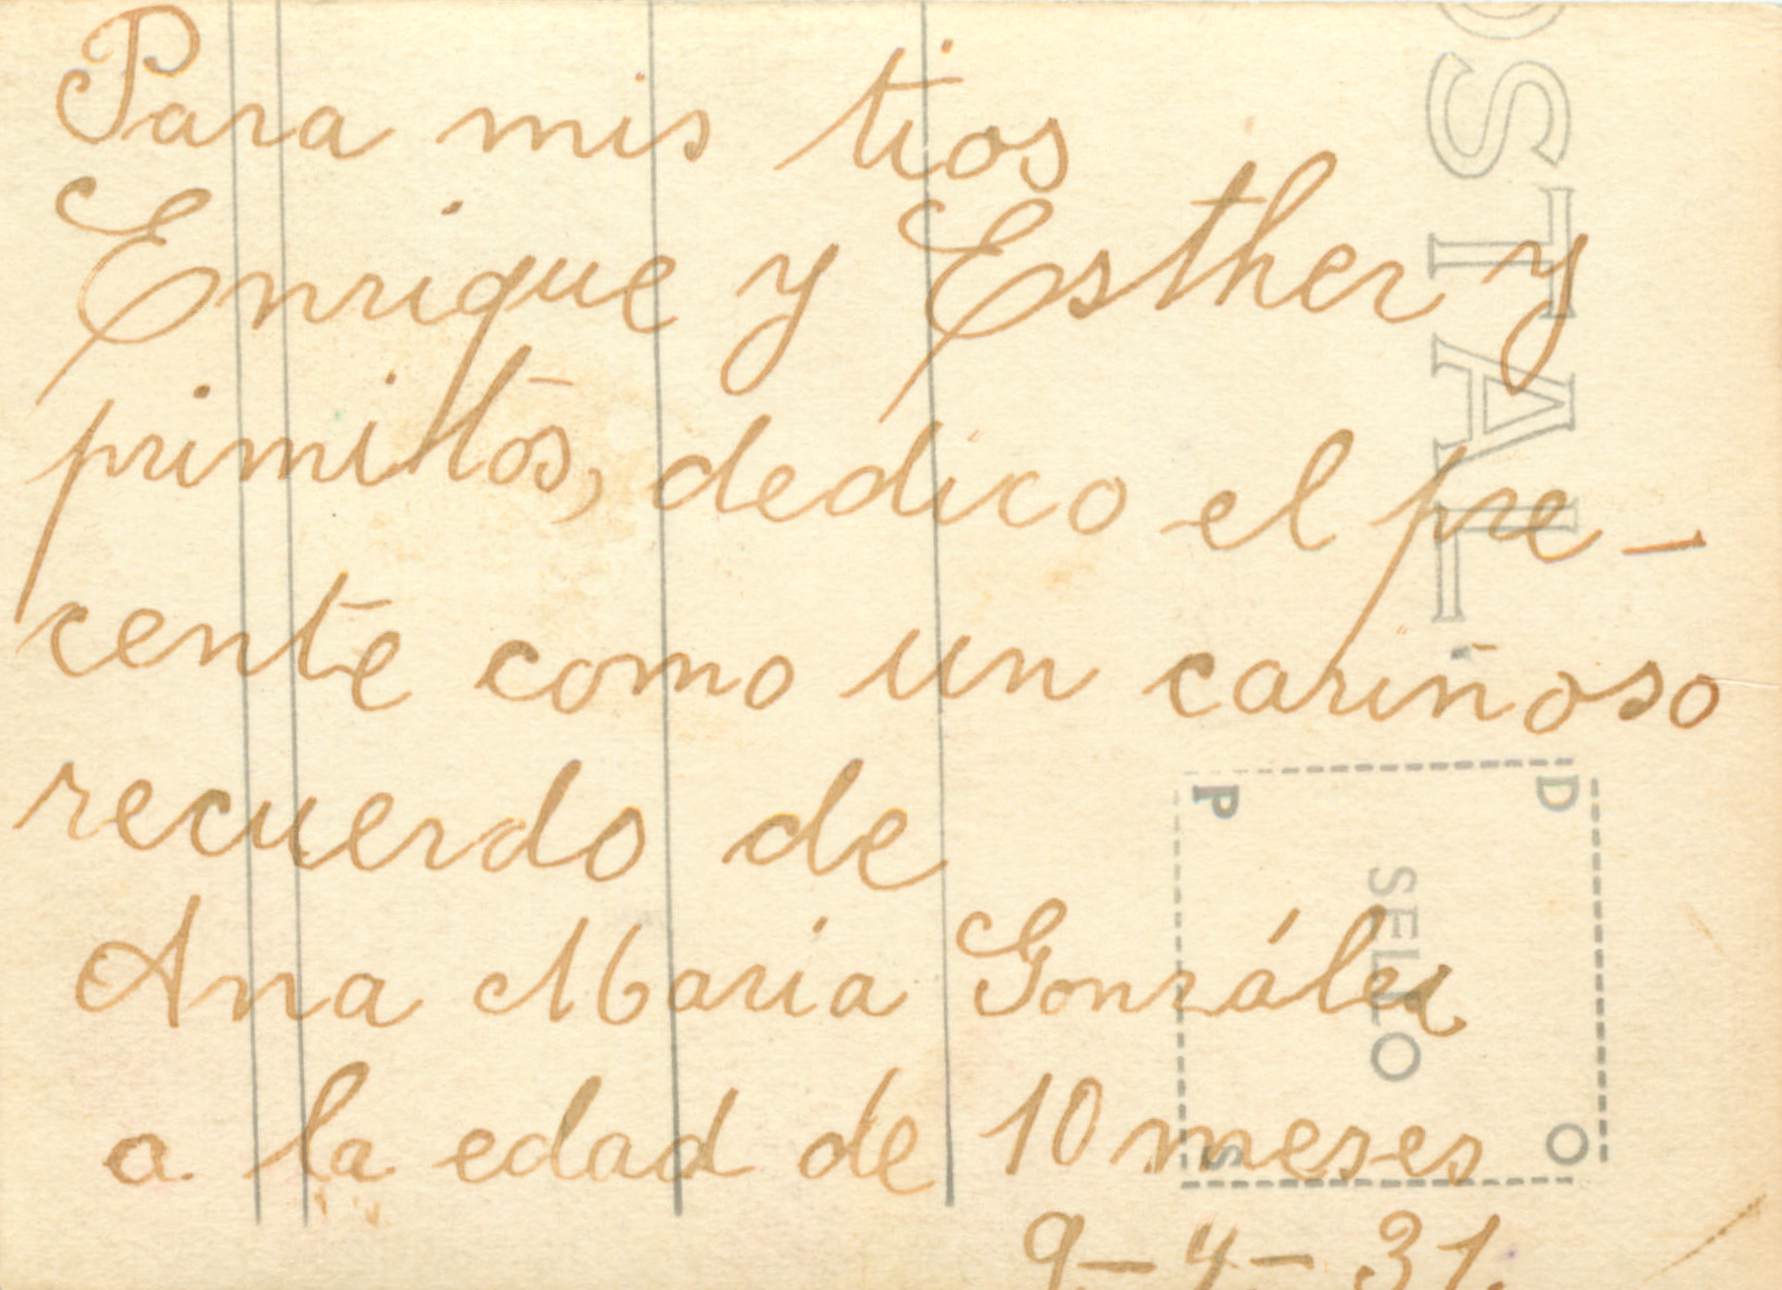 Para mis tios
Enrique y Esther y
primitos, dedico el pre-
cente como un cariñoso
recuerdo de
Ana Maria González
a la edad de 10 meses
9-4-31.
OSTAL
SELLO
D
P
O
S